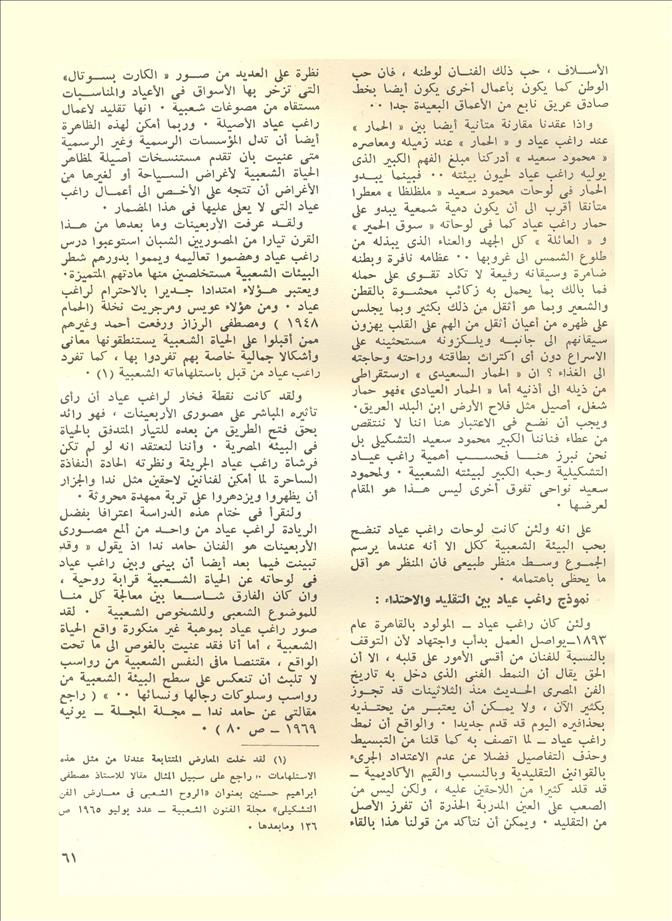 الأســلاف ، حب ذلك الفنــان لوطنه ، فان حب
الوطن كما يكون بأعمال أخرى يكون أيضا بخط
صادق عريق نابع من الأعماق البعيدة جدا ٠٠
واذا عقدنا مقارنة متأنية أيضا بين « الحمار »
عند راغب عياد و « الحمار » عند زميله ومعاصره
« محمود سعيد » أدركنا مبلغ الفهم الكبير الذى
يوليه راغب عياد لحيون بيئته ٠٠ فبينما يبــدو
الحمار فى لوحات محمود سعيد « ملظلظا » معطرا
متأنقا أقرب الى أن يكون دمية شمعية يبدو على
حمار راغب عياد كما فى لوحاته « سوق الحمير »
و « العائلة » كل الجهد والعناء الذى يبذله من
طلوع الشمس الى غروبها ٠٠ عظامه نافرة وبطنه
ضامرة وسيقانه رفيعة لا تكاد تقــوى على حمله
فما بالك بما يحمل به زكائب محشــوة بالقطن
والشعير وبما هو أثقل من ذلك بكثير وبما يجلس
على ظهره من أعيان أثقل من الهم على القلب يهزون
سيقانهم الى جانبــه ويلكــزونه مستحثينه على
الاسراع دون أى اكتراث بطاقته وراحته وحاجته
الى الغذاء ؟ ان « الحمار السعيدى » ارستقراطى
من ذيله الى أذنيه أما « الحمار العيادى »فهو حمار
شغل، أصيل مثل فلاح الأرض ابن البلد العريق.
ويجب أن نضع فى الاعتبار هنا اننا لا ننتقص
من عطاء فناننا الكبير محمود سعيد التشكيلى بل
نحن نبرز هنــا فحســب أهمية راغب عيــاد
التشكيلية وحبه الكبير لبيئته الشعبية ٠ ولمحمود
سعيد نواحى تفوق أخرى ليس هــذا هو المقام
لعرضها ٠
على انه ولئن كانت لوحات راغب عياد تنضح
بحب البيئة الشعبية ككل الا أنه عندما يرسم
الجموع وسـط منظر طبيعى فان المنظر هو أقل
ما يحظى باهتمامه ٠
نموذج راغب عياد بين التقليد والاحتذاء :
ولئن كان راغب عياد ــ المولود بالقاهرة عام
١٨٩٣ــيواصل العمل بدأب واجتهاد لأن التوقف
بالنسبة للفنان من أقسى الأمور على قلبه ، الا أن
الحق يقال أن النمط الفنى الذى دخل به تاريخ
الفن المصرى الحديث منذ الثلاثينات قد تجــوز
بكثير الآن ، ولا يمــكن أن يعتبــر من يحتــذيه
بحذافيره اليوم قد قدم جديدا ٠ والواقع أن نمط
راغب عياد ــ لما اتصف به كما قلنا من التبسيط
وحذف التفاصيل فضلا عن عدم الاعتداد الجرىء
بالقوانين التقليدية وبالنسب والقيم الأكاديمية ــ
قد قلد كثيرا من اللاحقين عليه ، ولكن ليس من
الصعب على العين المدربة الحذرة أن تفرز الأصل
من التقليد ٠ ويمكن أن نتأكد من قولنا هذا بالقاء
نظرة على العديد من صــور « الكارت بســوتال»
التى تزخر بها الأسواق فى الأعياد والمناســبات
مستقاه من مصوغات شعبية ٠ انها تقليد لأعمال
راغب عياد الأصيلة ٠ وربما أمكن لهذه الظاهرة
أيضا أن تدل المؤسسات الرسمية وغير الرسمية
متى عنيت بان تقدم مستنسخات أصيلة لمظاهر
الحياة الشعبية لأغراض السـياحة أو لغيرها من
الأغراض أن تتجه على الأخــص الى أعمــال راغب
عياد التى لا يعلى عليها فى هذا المضمار ٠
ولقــد عرفت الأربعينات وما بعدها من هــذا
القرن تيارا من المصوريين الشبان استوعبوا درس
راغب عياد وهضموا تعاليمه ويمموا بدورهم شطر
البيئات الشعبية مستخلصين منها مادتهم المتميزة٠
ويعتبر هــؤلاء امتدادا جــديرا بالاحترام لراغب
عياد ٠ ومن هؤلاء عويس ومرجريت نخلة (الحمام
١٩٤٨ ) ومصطفى الرزاز ورفعت أحمد وغيرهم
ممن أقبلوا على الحياة الشعبية يستنطقونها معانى
وأشكالا جمالية خاصة بهم تفردوا بها ، كما تفرد
راغب عياد من قبل باستلهاماته الشعبية (١) ٠
ولقد كانت نقطة فخار لراغب عياد أن رأى
تأثيره المباشر على مصورى الأربعينات ، فهو رائد
بحق فتح الطريق من بعده للتيار المتدفق بالحياة
فى البيئه المصرية ٠ وأننا لنعتقد انه لو لم تكن
فرشاة راغب عياد الجريئة ونظرته الحادة النفاذة
الساحرة لما أمكن لفنانين لاحقين مثل ندا والجزار
أن يظهروا ويزدهروا على تربة ممهدة محروثة ٠
ولنقرأ فى ختام هذه الدراسة اعترافا بفضل
الريادة لراغب عياد من واحــد من ألمع مصورى
الأربعينات هو الفنان حامد ندا اذ يقول « وقد
تبينت فيما بعد أيضا أن بينى وبين راغب عياد
فى لوحاته عن الحياة الشــعبية قرابة روحية ،
وان كان الفارق شـاسـعا بين معالجة كل منــا
للموضوع الشعبى وللشخوص الشعبية ٠ لقد
صور راغب عياد بموهبة غير منكورة واقع الحياة
الشعبية ، أما أنا فقد عنيت بالغوص الى ما تحت
الواقع ، مقتنصا مافى النفس الشعبية من رواسب
لا تلبث أن تنعكس على سطح البيئة الشعبية من
رواسب وسلوكات رجالها ونسائها ٠٠ » ( راجع
مقالتى عن حامد ندا ــ مجــلة المجــلة ــ يونيه
١٩٦٩ ــ ص ٨٠ ) ٠
(١) لقد خلت المعارض المتتابعة عندنا من مثل هذه
الاستلهامات ٠٠ راجع على سبيل المثال مقالا للاستاذ مصطفى
ابراهيم حسنين بعنوان «الروح الشعبى فى معــارض الفن
التشكيلى» مجلة الفنون الشعبية ــ عدد يوليو ١٩٦٥ ص
١٣٦ ومابعدها ٠
٦١